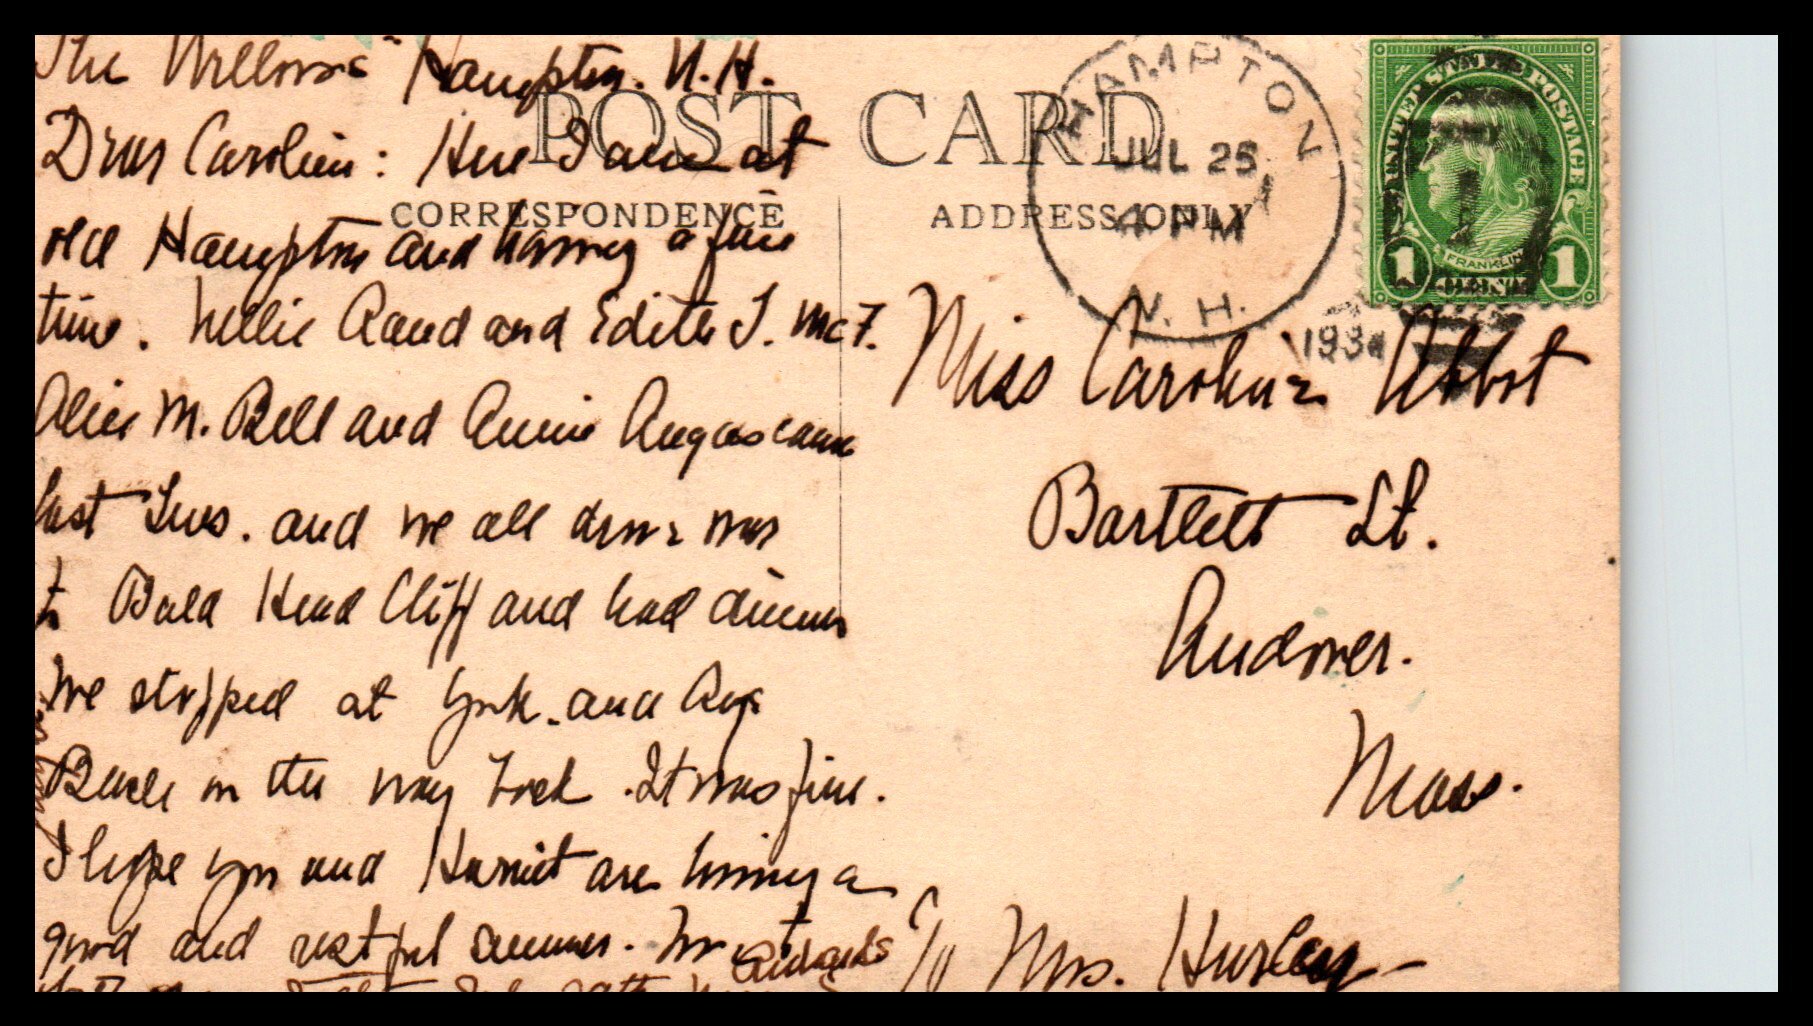 "The Willows" Hampton. N.H.
Dear Caroline: Here I am at
old Hampton and having a fine
time. Nellie Rand and Edith J. McF.
Alice M. Bell and Annie Angus came
last Tues. and we all drove over
to Bald Head Cliff and had dinner
We stopped at York. and Rye
Beach on the way back. It was fine.
I hope you and Harriet are having a
good and restful summer.
POST CARD
CORRESPONDENCE
ADDRESS ONLY
HAMPTON
JUL 25
4 PM
N.H.
UNITED STATES POSTAGE
1 FRANKLIN 1
CENT
Miss Caroline Abbot
Bartlett St.
Andover.
Mass.
c/o Mrs. Hurley